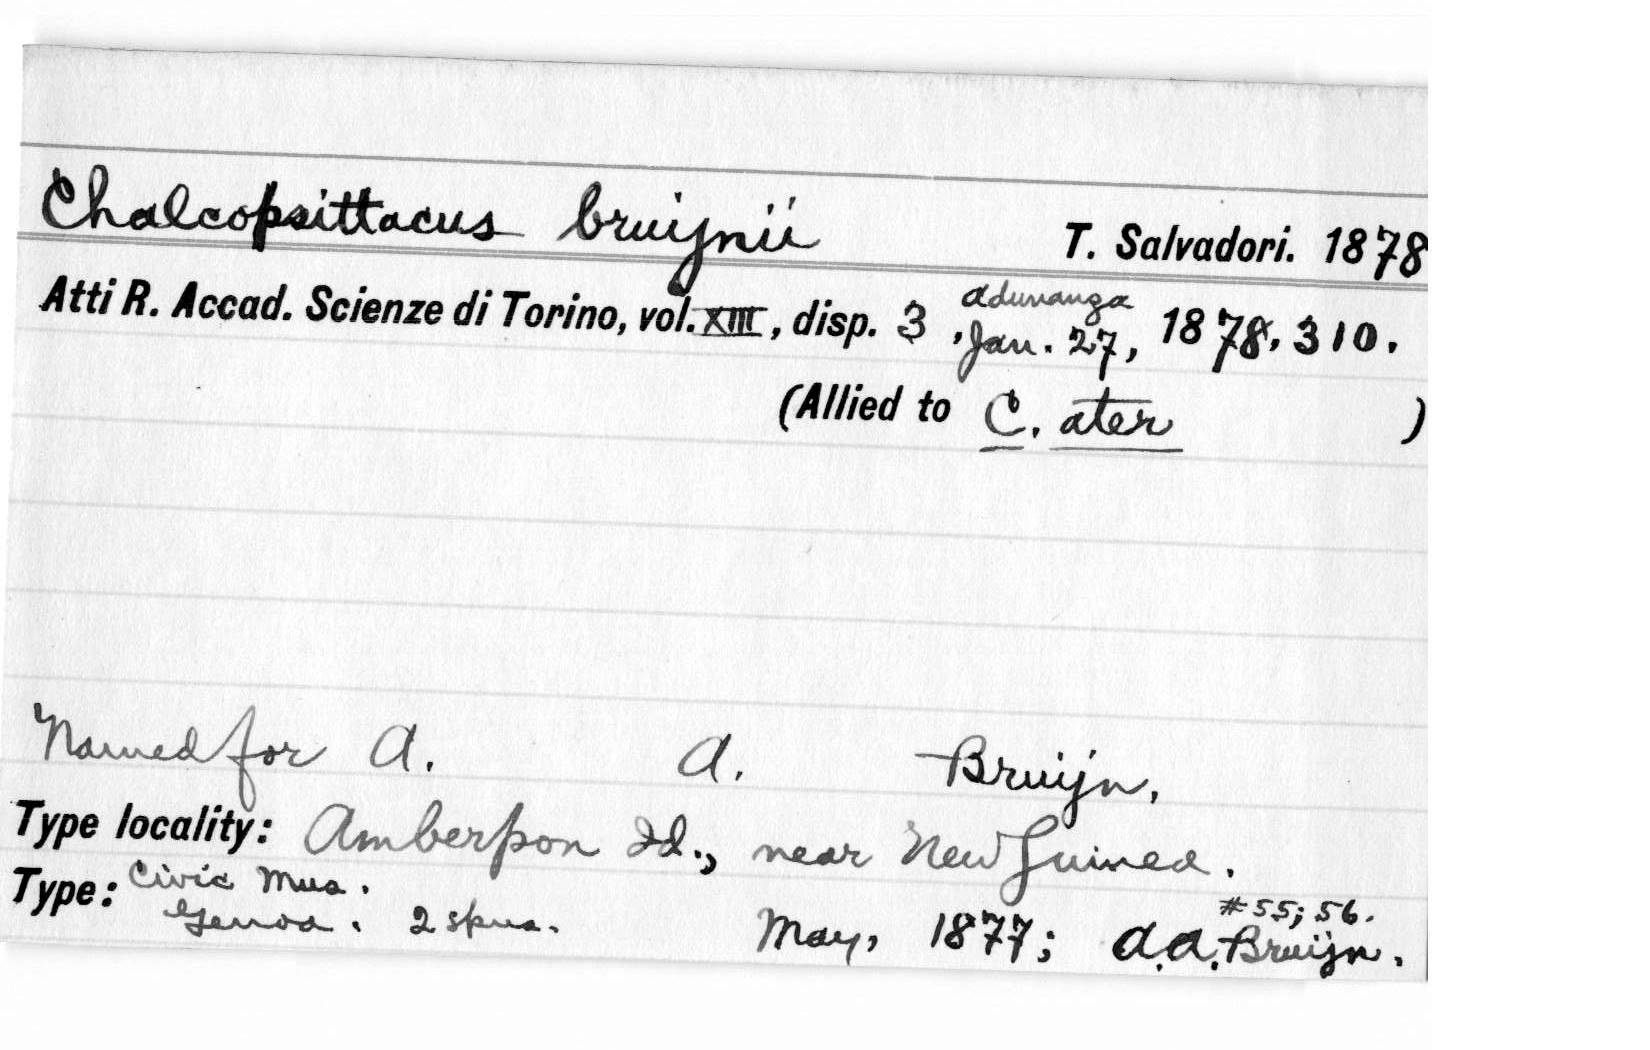 Chalcopsittacus bruijnii T. Salvadori. 1878
Atti R. Accad. Scienze di Torino, vol. XIII, disp. 3, adunanza Jan. 27, 1878, 310.
(Allied to C. ater )
Named for A. A. Bruijn,
Type locality: Amberpon Id., near New Guinea.
Type: Civic Mus. #55; 56.
Genoa. 2 spns. May, 1877; A.A. Bruijn.